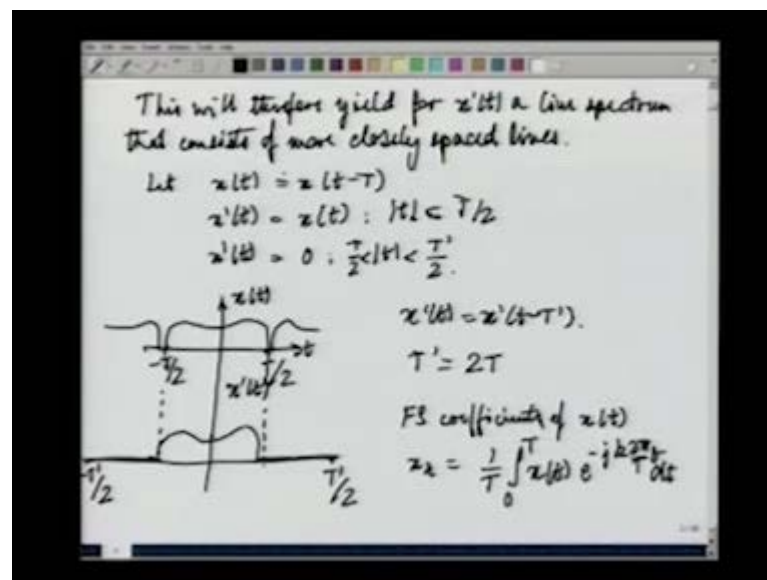 This will therefore yield for x'(t) a line spectrum
that consists of more closely spaced lines.
Let x(t) = x(t-T)
x'(t) = x(t) : |t| < T/2
x'(t) = 0 : T/2 < |t| < T'/2.
x(t)
t
-T/2
T/2
x'(t)
-T'/2
T'/2
x'(t) = x'(t-T').
T' = 2T
FS coefficients of x(t)
x_k = 1/T ∫_0^T x(t) e^{-jk 2π/T t} dt